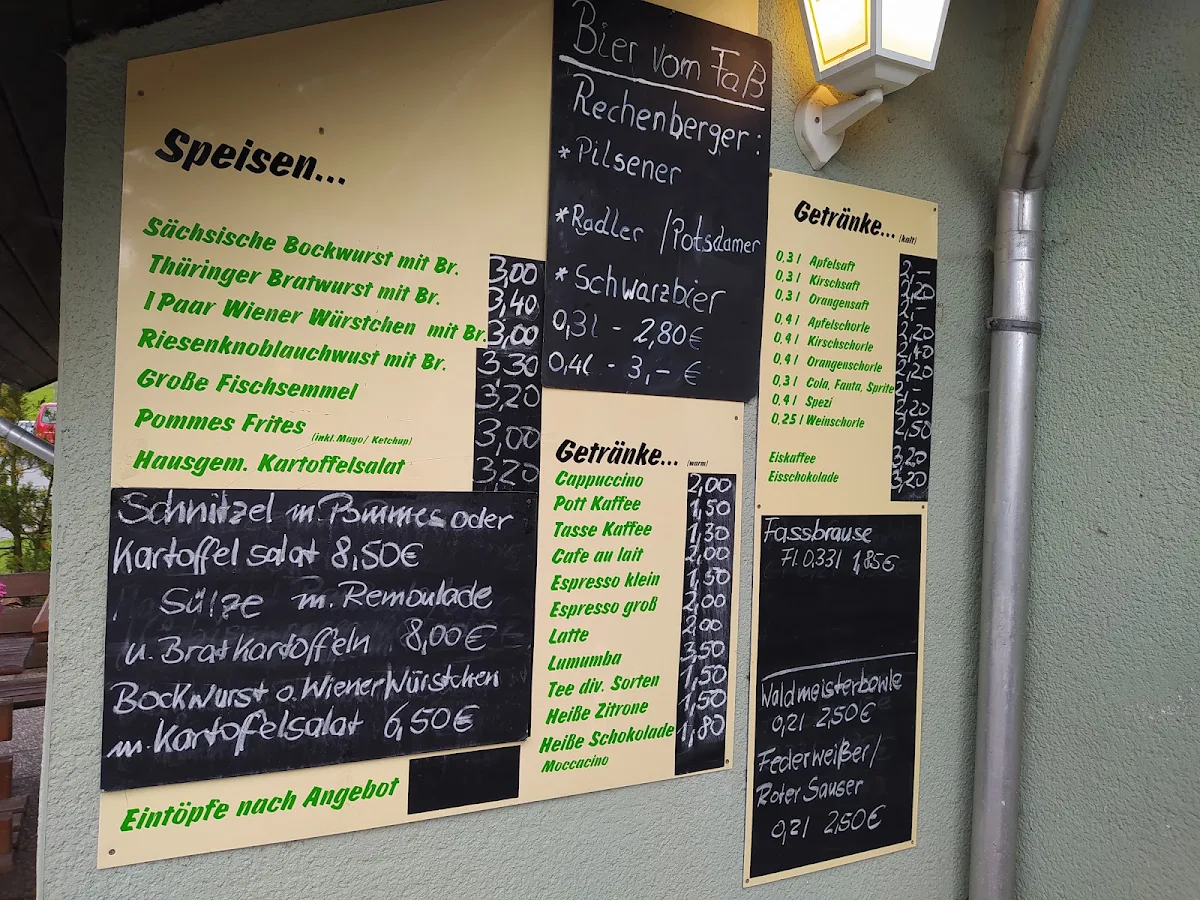 Speisen...
Sächsische Bockwurst mit Br. 3,00
Thüringer Bratwurst mit Br. 3,40
1 Paar Wiener Würstchen mit Br. 3,00
Riesenknoblauchwust mit Br. 3,30
Große Fischsemmel 3,20
Pommes Frites (inkl. Mayo/ Ketchup) 3,00
Hausgem. Kartoffelsalat 3,20
Schnitzel m. Pommes oder
Kartoffelsalat 8,50€
Sülze m. Remoulade
u. Bratkartoffeln 8,00€
Bockwurst o. Wiener Würstchen
m. Kartoffelsalat 6,50€
Eintöpfe nach Angebot
Bier vom Faß
Rechenberger:
* Pilsener
* Radler / Potsdamer
* Schwarzbier
0,3l - 2,80€
0,4l - 3,- €
Getränke... (warm)
Cappuccino 2,00
Pott Kaffee 1,50
Tasse Kaffee 1,30
Cafe au lait 2,00
Espresso klein 1,50
Espresso groß 2,00
Latte 2,00
Lumumba 3,50
Tee div. Sorten 1,50
Heiße Zitrone 1,50
Heiße Schokolade 1,80
Moccacino
Getränke... (kalt)
0,3 l Apfelsaft 2,-
0,3 l Kirschsaft 2,20
0,3 l Orangensaft 2,-
0,4 l Apfelschorle 2,20
0,4 l Kirschschorle 2,40
0,4 l Orangenschorle 2,20
0,3 l Cola, Fanta, Sprite 2,-
0,4 l Spezi 2,20
0,25 l Weinschorle 2,50
Eiskaffee 3,20
Eisschokolade 3,20
Fassbrause
Fl. 0,33l 1,85€
Waldmeisterbowle
0,2l 2,50€
Federweißer/
Roter Sauser
0,2l 2,50€